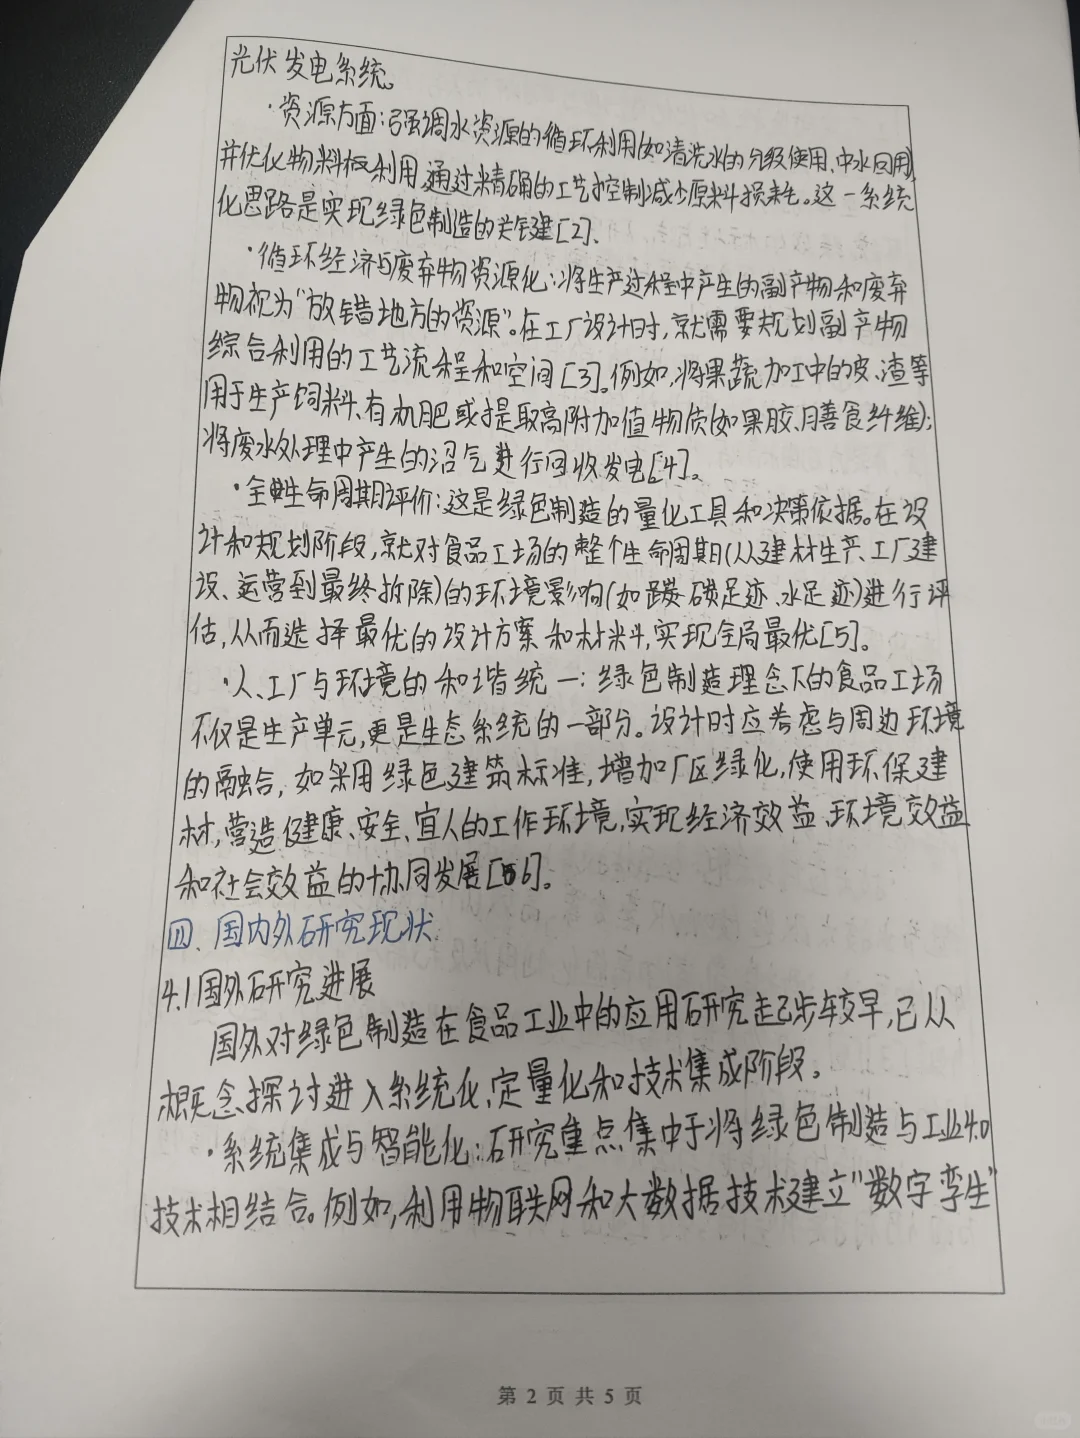 光伏发电系统。
·资源方面:强调水资源的循环利用(如清洗水的分级使用、中水回用),
并优化物料梯级利用,通过精确的工艺控制减少原料损耗。这一系统
化思路是实现绿色制造的关键[2]。
·循环经济与废弃物资源化:将生产过程中产生的副产物和废弃
物视为“放错地方的资源”。在工厂设计时,就需要规划副产物
综合利用的工艺流程和空间[3]。例如,将果蔬加工中的皮、渣等
用于生产饲料、有机肥或提取高附加值物质(如果胶、膳食纤维);
将废水处理中产生的沼气进行回收发电[4]。
·全生命周期评价:这是绿色制造的量化工具和决策依据。在设
计和规划阶段,就对食品工场的整个生命周期(从建材生产、工厂建
设、运营到最终拆除)的环境影响(如碳足迹、水足迹)进行评
估,从而选择最优的设计方案和材料,实现全局最优[5]。
·人、工厂与环境的和谐统一:绿色制造理念下的食品工场
不仅是生产单元,更是生态系统的一部分。设计时应考虑与周边环境
的融合,如采用绿色建筑标准,增加厂区绿化,使用环保建
材,营造健康、安全、宜人的工作环境,实现经济效益、环境效益
和社会效益的协同发展[6]。
四、国内外研究现状
4.1国外研究进展
国外对绿色制造在食品工业中的应用研究起步较早,已从
概念探讨进入系统化、定量化和技术集成阶段。
·系统集成与智能化:研究重点集中于将绿色制造与工业4.0
技术相结合。例如,利用物联网和大数据技术建立“数字孪生”
第 2 页 共 5 页